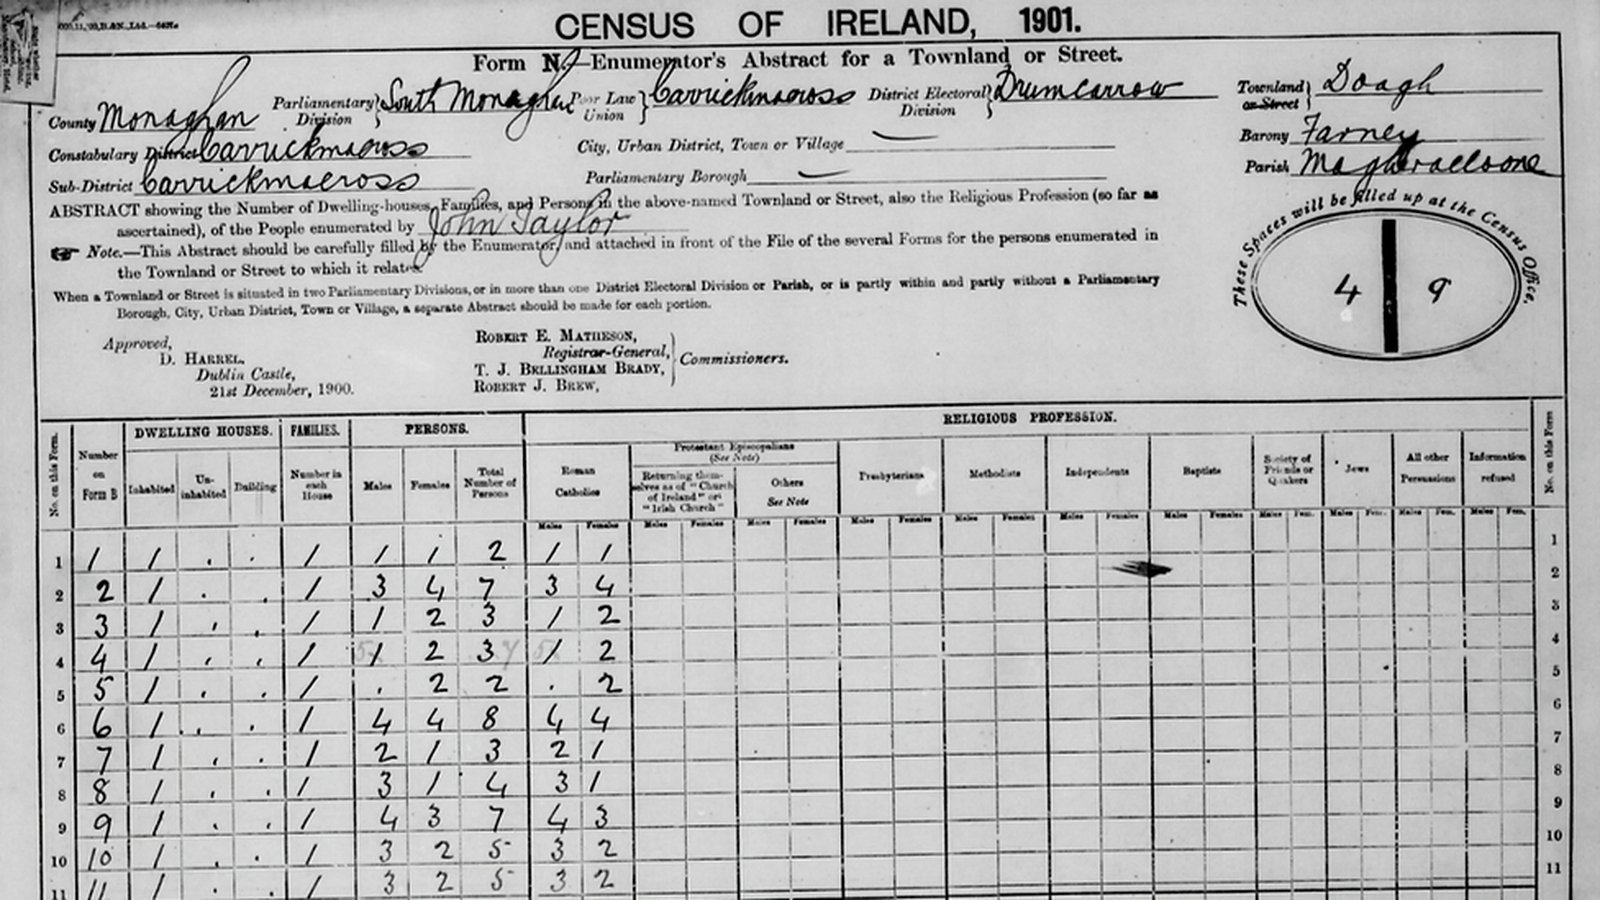 CENSUS OF IRELAND, 1901.
Form N.—Enumerator's Abstract for a Townland or Street.
County Monaghan Parliamentary Division } South Monaghan Poor Law Union } Carrickmacross District Electoral Division } Drumcarrow Townland or Street } Doagh
Constabulary District Carrickmacross City, Urban District, Town or Village — Barony Farney
Sub-District Carrickmacross Parliamentary Borough — Parish Magheracloone
ABSTRACT showing the Number of Dwelling-houses, Families, and Persons in the above-named Townland or Street, also the Religious Profession (so far as
ascertained), of the People enumerated by John Taylor
Note.—This Abstract should be carefully filled by the Enumerator, and attached in front of the File of the several Forms for the persons enumerated in
the Townland or Street to which it relates.
When a Townland or Street is situated in two Parliamentary Divisions, or in more than one District Electoral Division or Parish, or is partly within and partly without a Parliamentary
Borough, City, Urban District, Town or Village, a separate Abstract should be made for each portion.
These Spaces will be filled up at the Census Office.
4 9
Approved,
D. HARREL.
Dublin Castle,
21st December, 1900.
ROBERT E. MATHESON,
Registrar-General,
T. J. BELLINGHAM BRADY,
ROBERT J. BREW,
} Commissioners.
No. on this Form. Number on Form B DWELLING HOUSES. FAMILIES. PERSONS. RELIGIOUS PROFESSION. No. on this Form
Inhabited Un-inhabited Building Number in each House Males Females Total Number of Persons
Roman Catholics Protestant Episcopalians (See Note) Presbyterians Methodists Independents Baptists Society of Friends or Quakers Jews All other Persuasions Information refused
Returning themselves as of "Church of Ireland" or "Irish Church" Others See Note
Males Females Males Females Males Females Males Females Males Females Males Females Males Females Males Fem. Males Fem. Males Fem. Males Fem.
1 1 1 . . 1 1 1 2 1 1 1
2 2 1 . . 1 3 4 7 3 4 2
3 3 1 . . 1 1 2 3 1 2 3
4 4 1 . . 1 1 2 3 1 2 4
5 5 1 . . 1 . 2 2 . 2 5
6 6 1 . . 1 4 4 8 4 4 6
7 7 1 . . 1 2 1 3 2 1 7
8 8 1 . . 1 3 1 4 3 1 8
9 9 1 . . 1 4 3 7 4 3 9
10 10 1 . . 1 3 2 5 3 2 10
11 11 1 . . 1 3 2 5 3 2 11